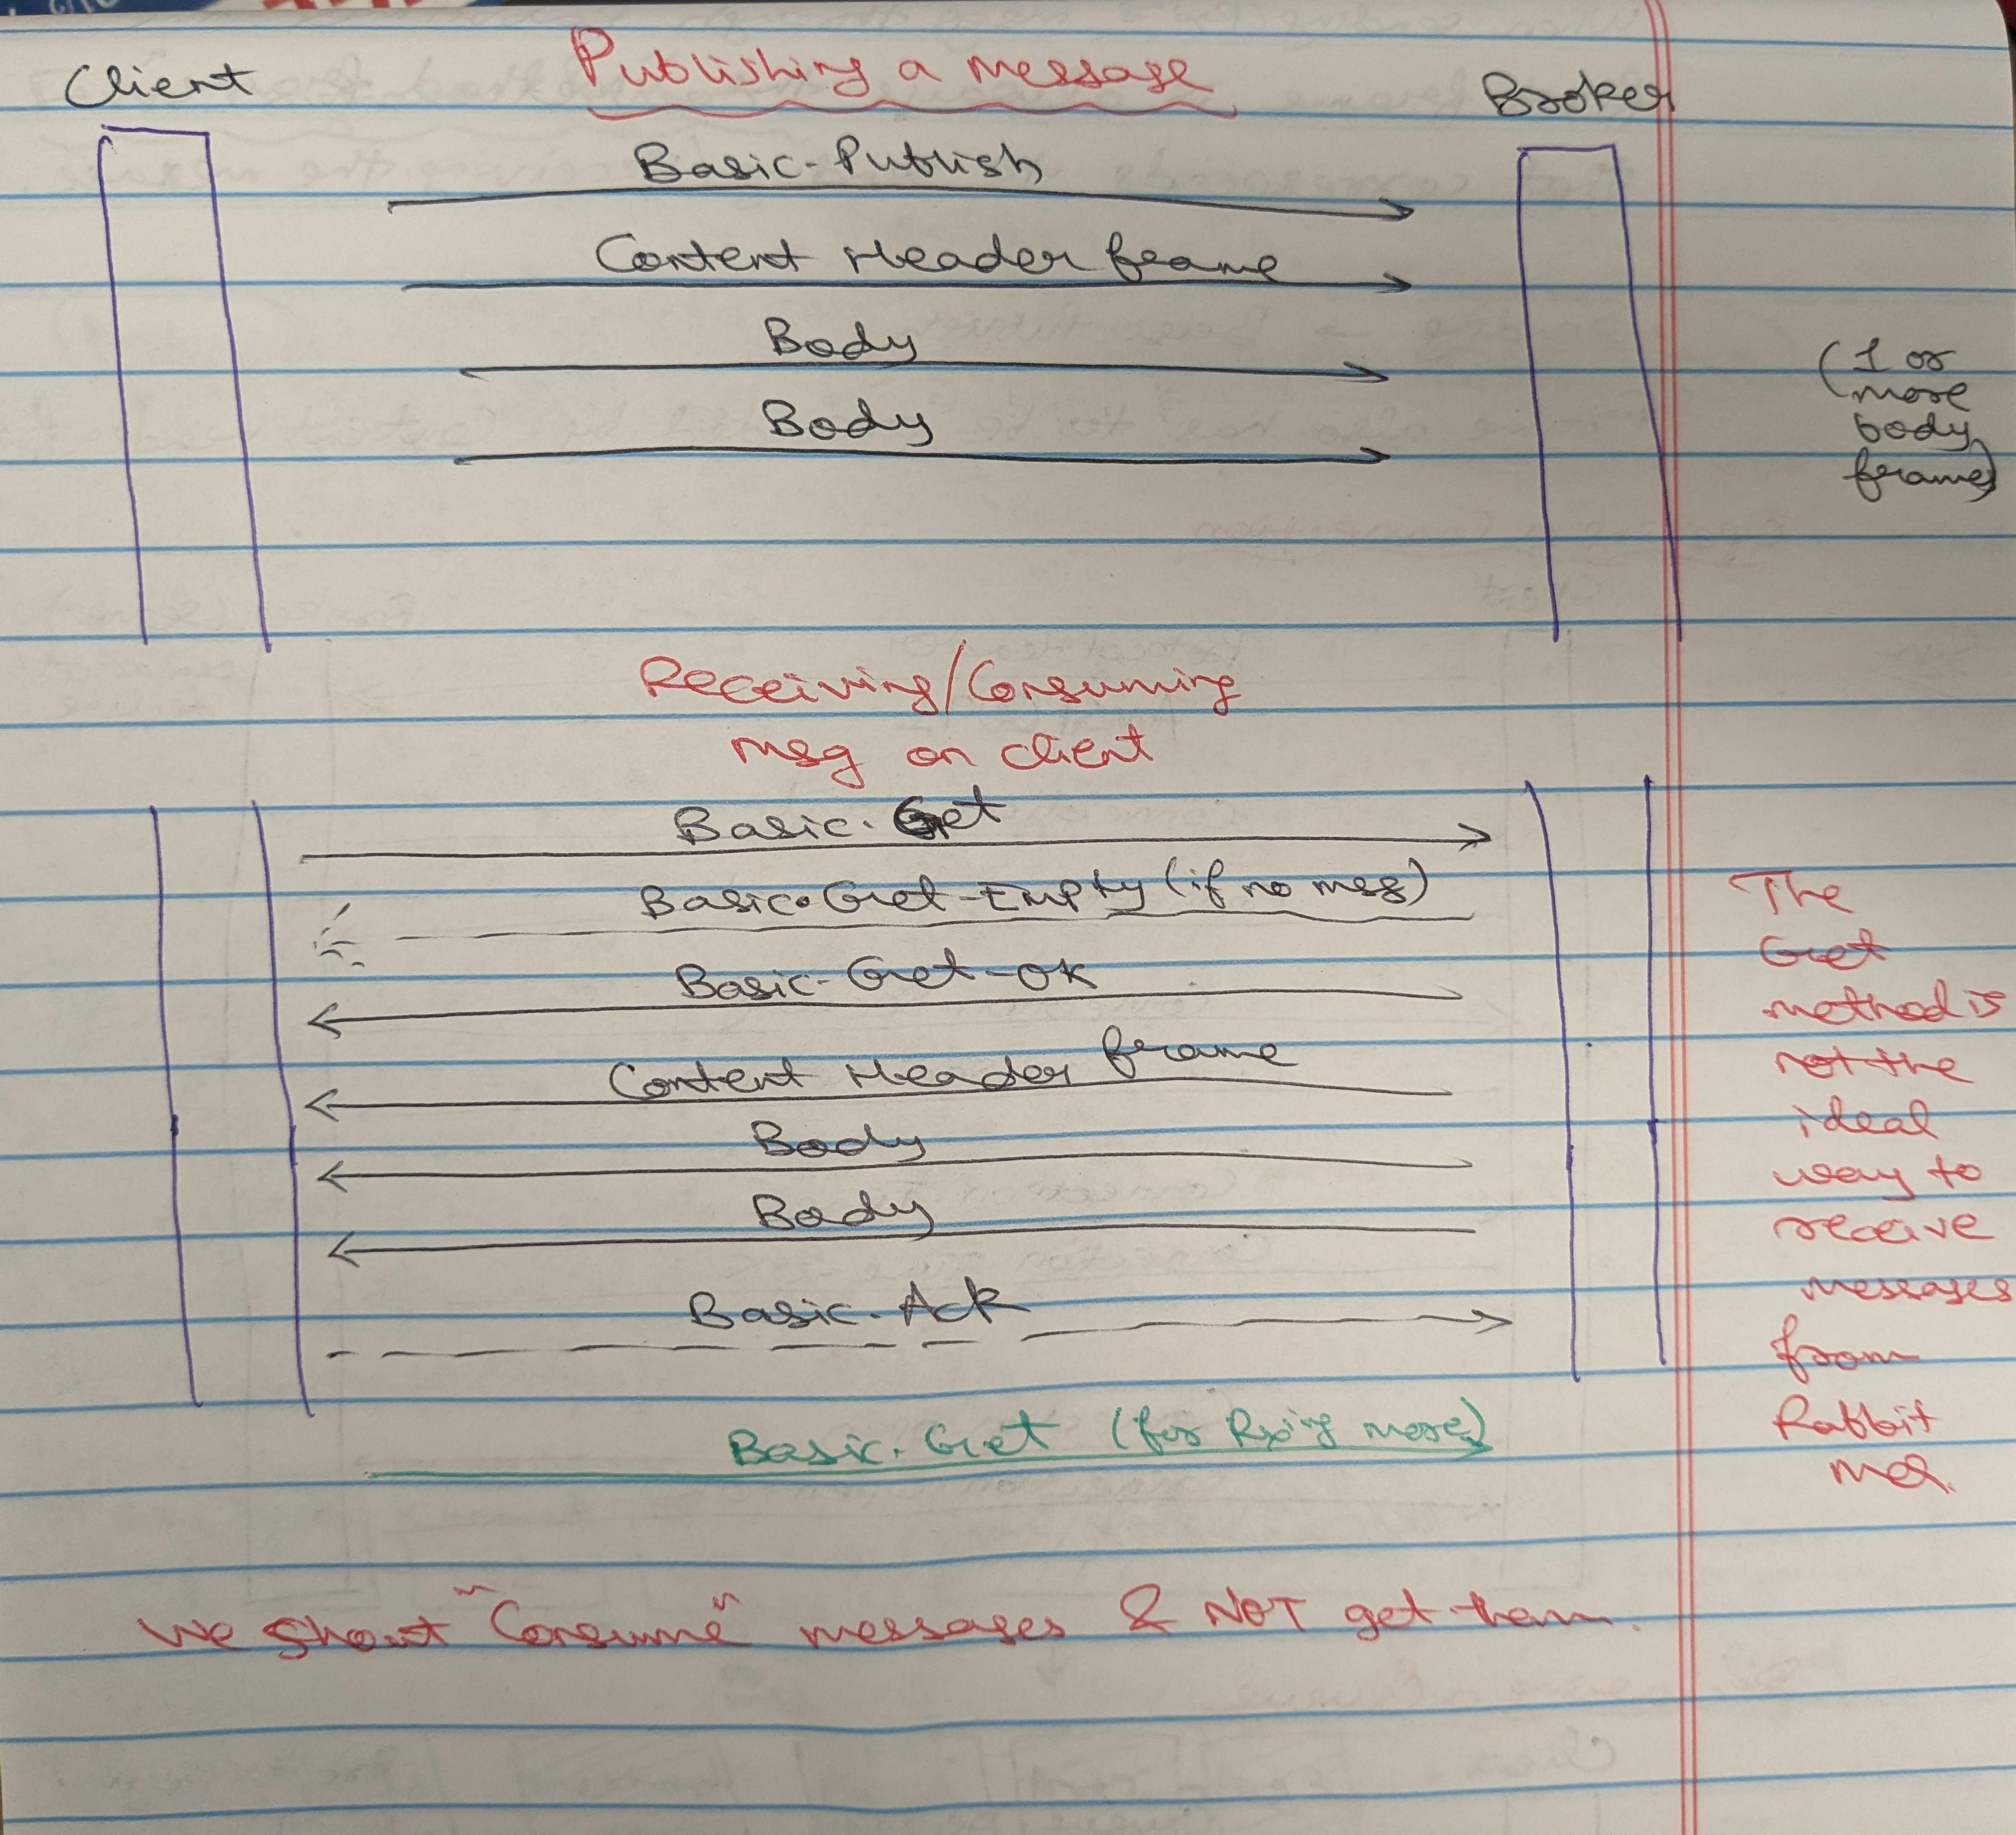 Publishing a message
Client
Broker
Basic-Publish
Content Header frame
Body
Body
(1 or
more
body
frame)
Receiving/Consuming
msg on client
Basic. Get
Basic.Get-Empty (if no msg)
Basic-Get-OK
Content Header frame
Body
Body
Basic.Ack
Basic. Get (for Rx'ing more)
The
Get
method is
not the
ideal
way to
receive
messages
from
Rabbit
MQ.
We "Consume" messages & NOT get them.